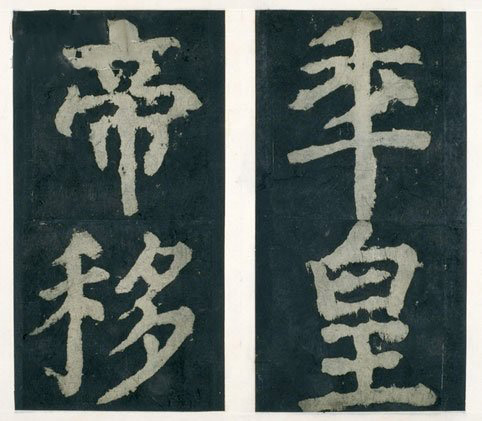 年皇
帝移